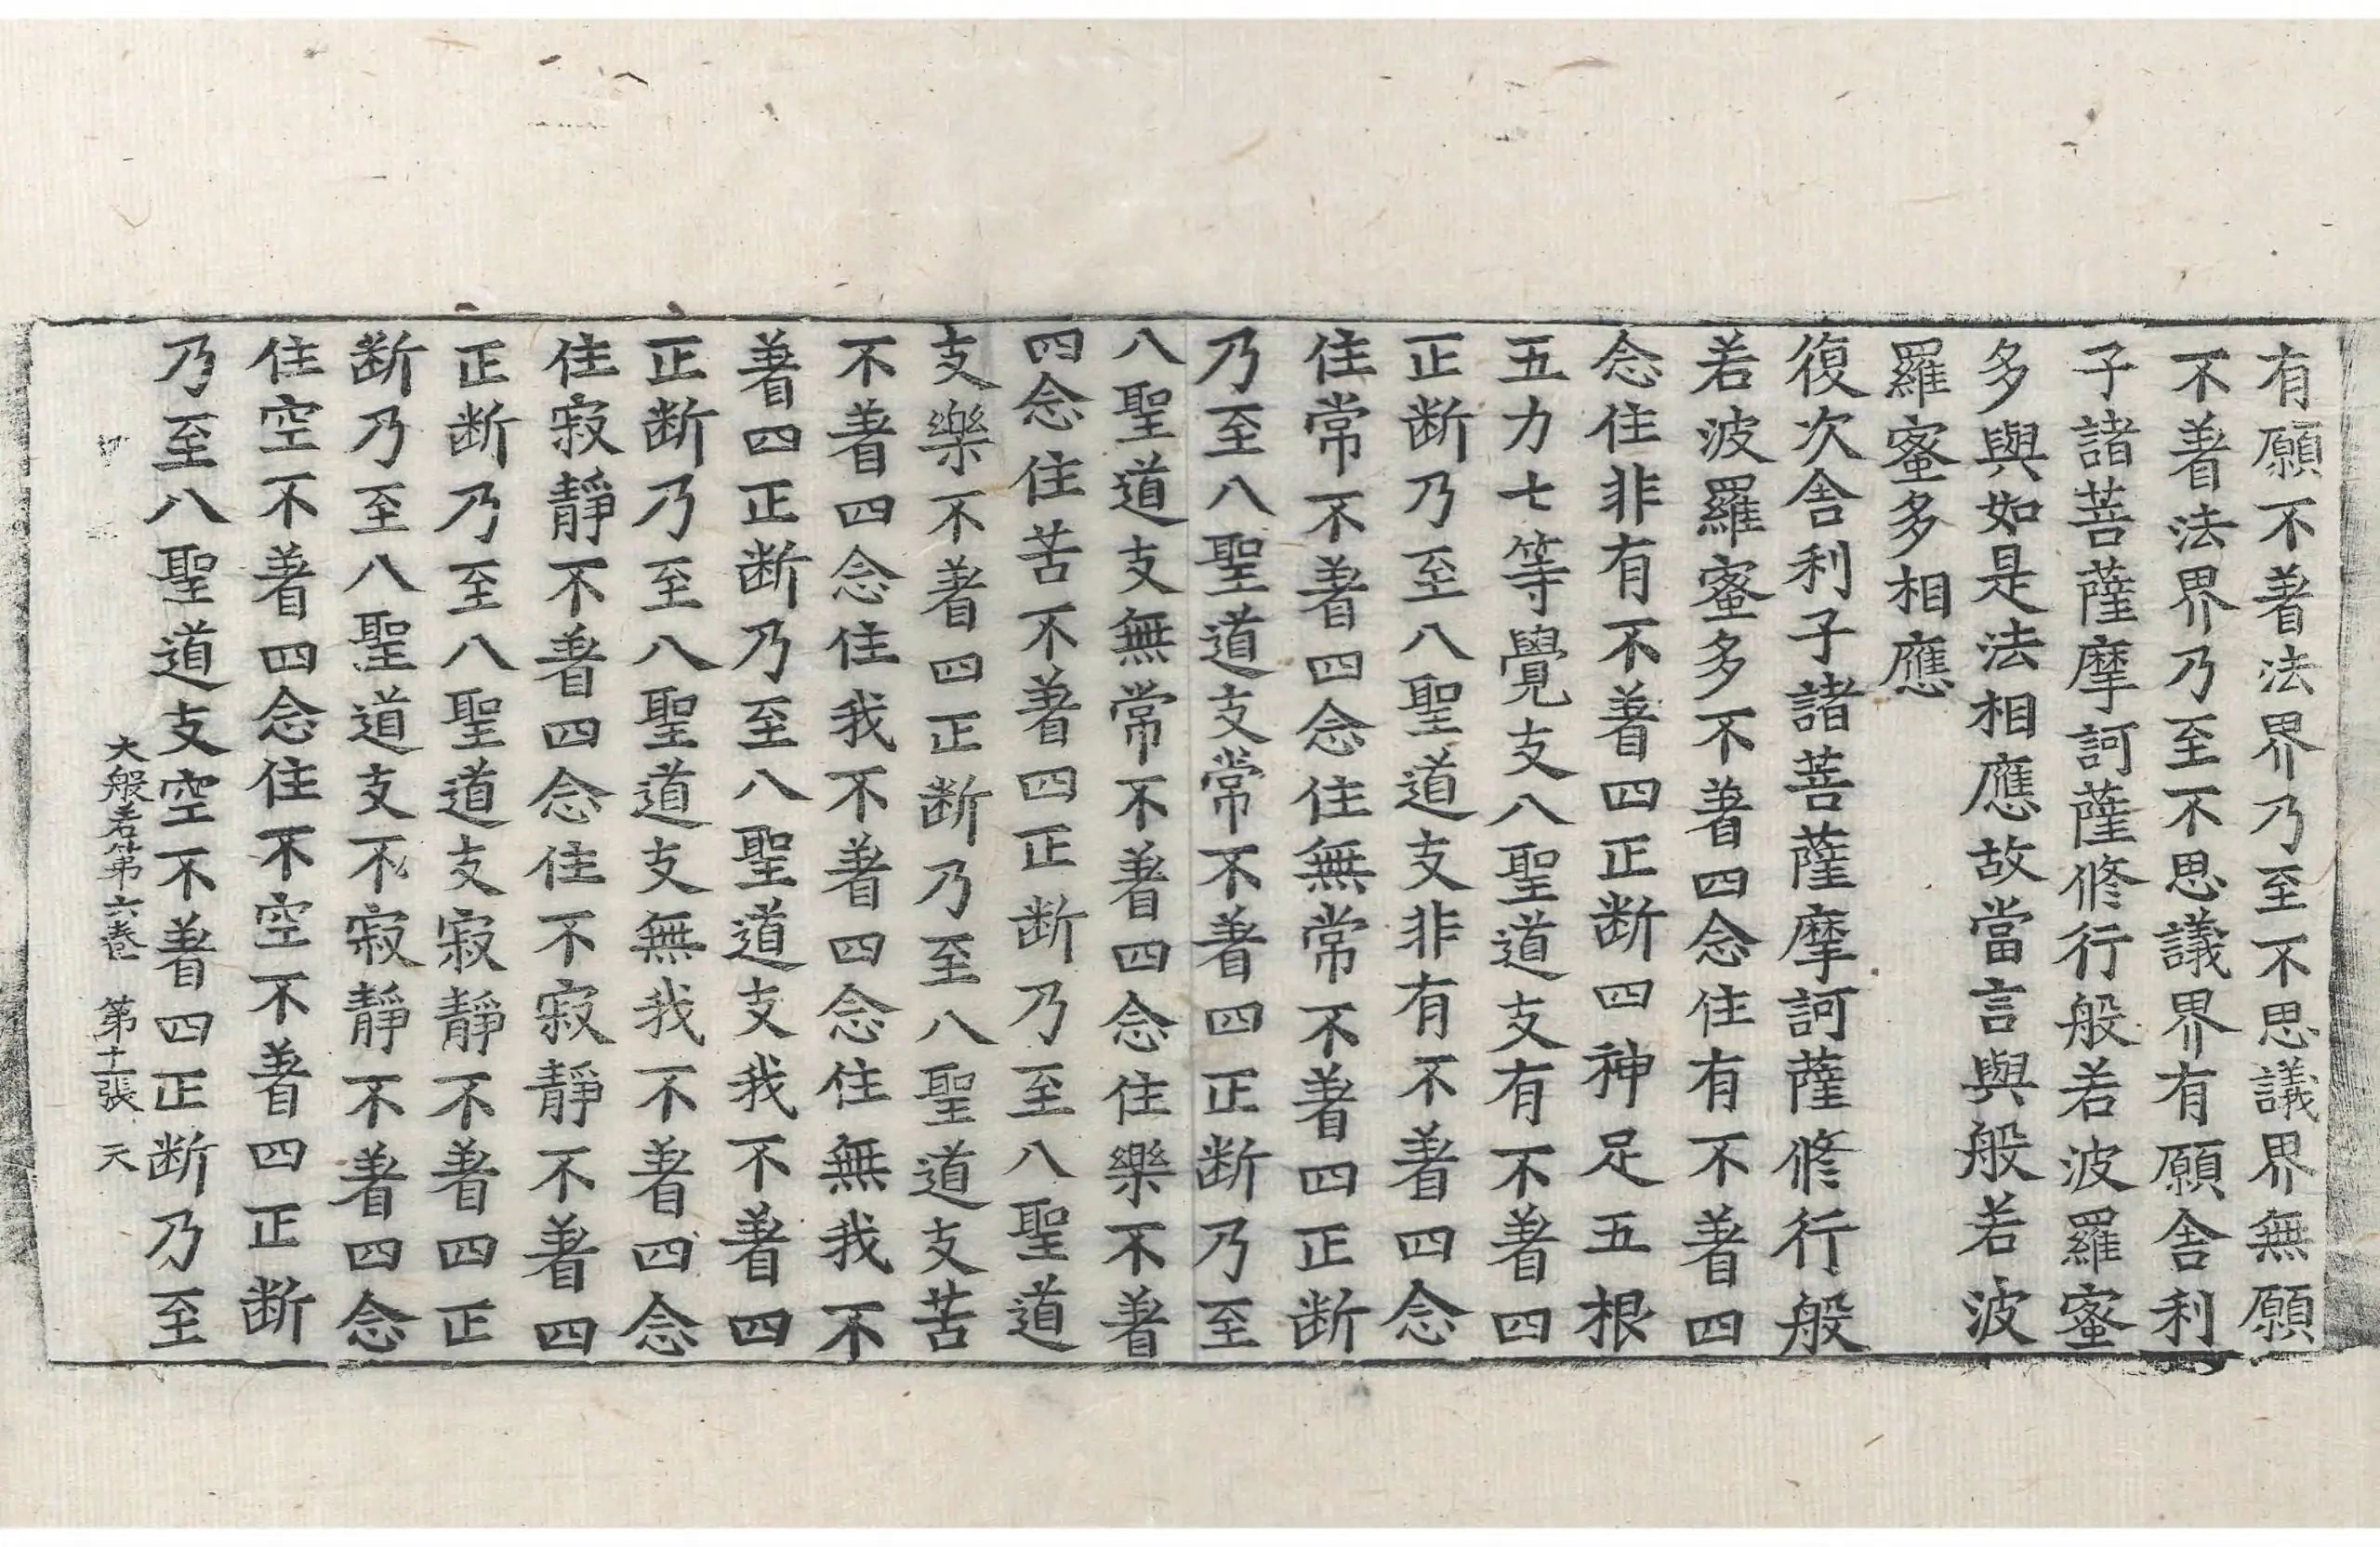 有願不著法界乃至不思議界無願
不著法界乃至不思議界有願舍利
子諸菩薩摩訶薩修行般若波羅蜜
多與如是法相應故當言與般若波
羅蜜多相應
復次舍利子諸菩薩摩訶薩修行般
若波羅蜜多不著四念住有不著四
念住非有不著四正断四神足五根
五力七等覺支八聖道支有不著四
正断乃至八聖道支非有不著四念
住常不著四念住無常不著四正断
乃至八聖道支常不著四正断乃至
八聖道支無常不著四念住樂不著
四念住苦不著四正断乃至八聖道
支樂不著四正断乃至八聖道支苦
不著四念住我不著四念住無我不
著四正断乃至八聖道支我不著四
正断乃至八聖道支無我不著四念
住寂靜不著四念住不寂靜不著四
正断乃至八聖道支寂靜不著四正
断乃至八聖道支不寂靜不著四念
住空不著四念住不空不著四正断
乃至八聖道支空不著四正断乃至
大般若第六卷 第十一張 天